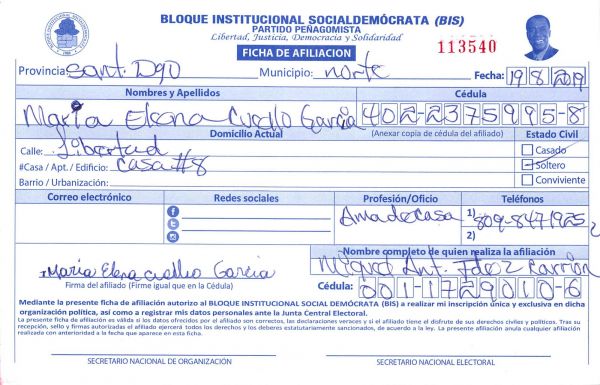 BLOQUE INSTITUCIONAL SOCIALDEMÓCRATA (BIS)
PARTIDO PEÑAGOMISTA
Libertad, Justicia, Democracia y Solidaridad
FICHA DE AFILIACION
113540
Provincia: Sant. Dgo Municipio: norte Fecha: 19/8/2019
Nombres y Apellidos Cédula
Maria Elena Cuello Garcia 402-2375995-8
Domicilio Actual (Anexar copia de cédula del afiliado) Estado Civil
Calle: Libertad Casado
#Casa / Apt. / Edificio: Casa #8 Soltero
Barrio / Urbanización: Conviviente
Correo electrónico Redes sociales Profesión/Oficio Teléfonos
Ama de casa 1) 809-847-1925
2)
Nombre completo de quien realiza la afiliación
Maria Elena cuello Garcia Miguel Ant. Fdez
Firma del afiliado (Firme igual que en la Cédula) Cédula: 001-1729010-6
Mediante la presente ficha de afiliación autorizo al BLOQUE INSTITUCIONAL SOCIAL DEMÓCRATA (BIS) a realizar mi inscripción única y exclusiva en dicha
organización política, así como a registrar mis datos personales ante la Junta Central Electoral.
La presente ficha de afiliación es válida si los datos ofrecidos por el afiliado son correctos, las declaraciones veraces y si el afiliado tiene el disfrute de sus derechos civiles y políticos. Tras su
recepción, sello y firmas autorizadas el afiliado ejercerá todos los derechos y los deberes estatutariamente sancionados, de acuerdo a la ley. La presente afiliación anula cualquier afiliación
realizada con anterioridad a la fecha que aparece en esta ficha.
SECRETARIO NACIONAL DE ORGANIZACIÓN SECRETARIO NACIONAL ELECTORAL